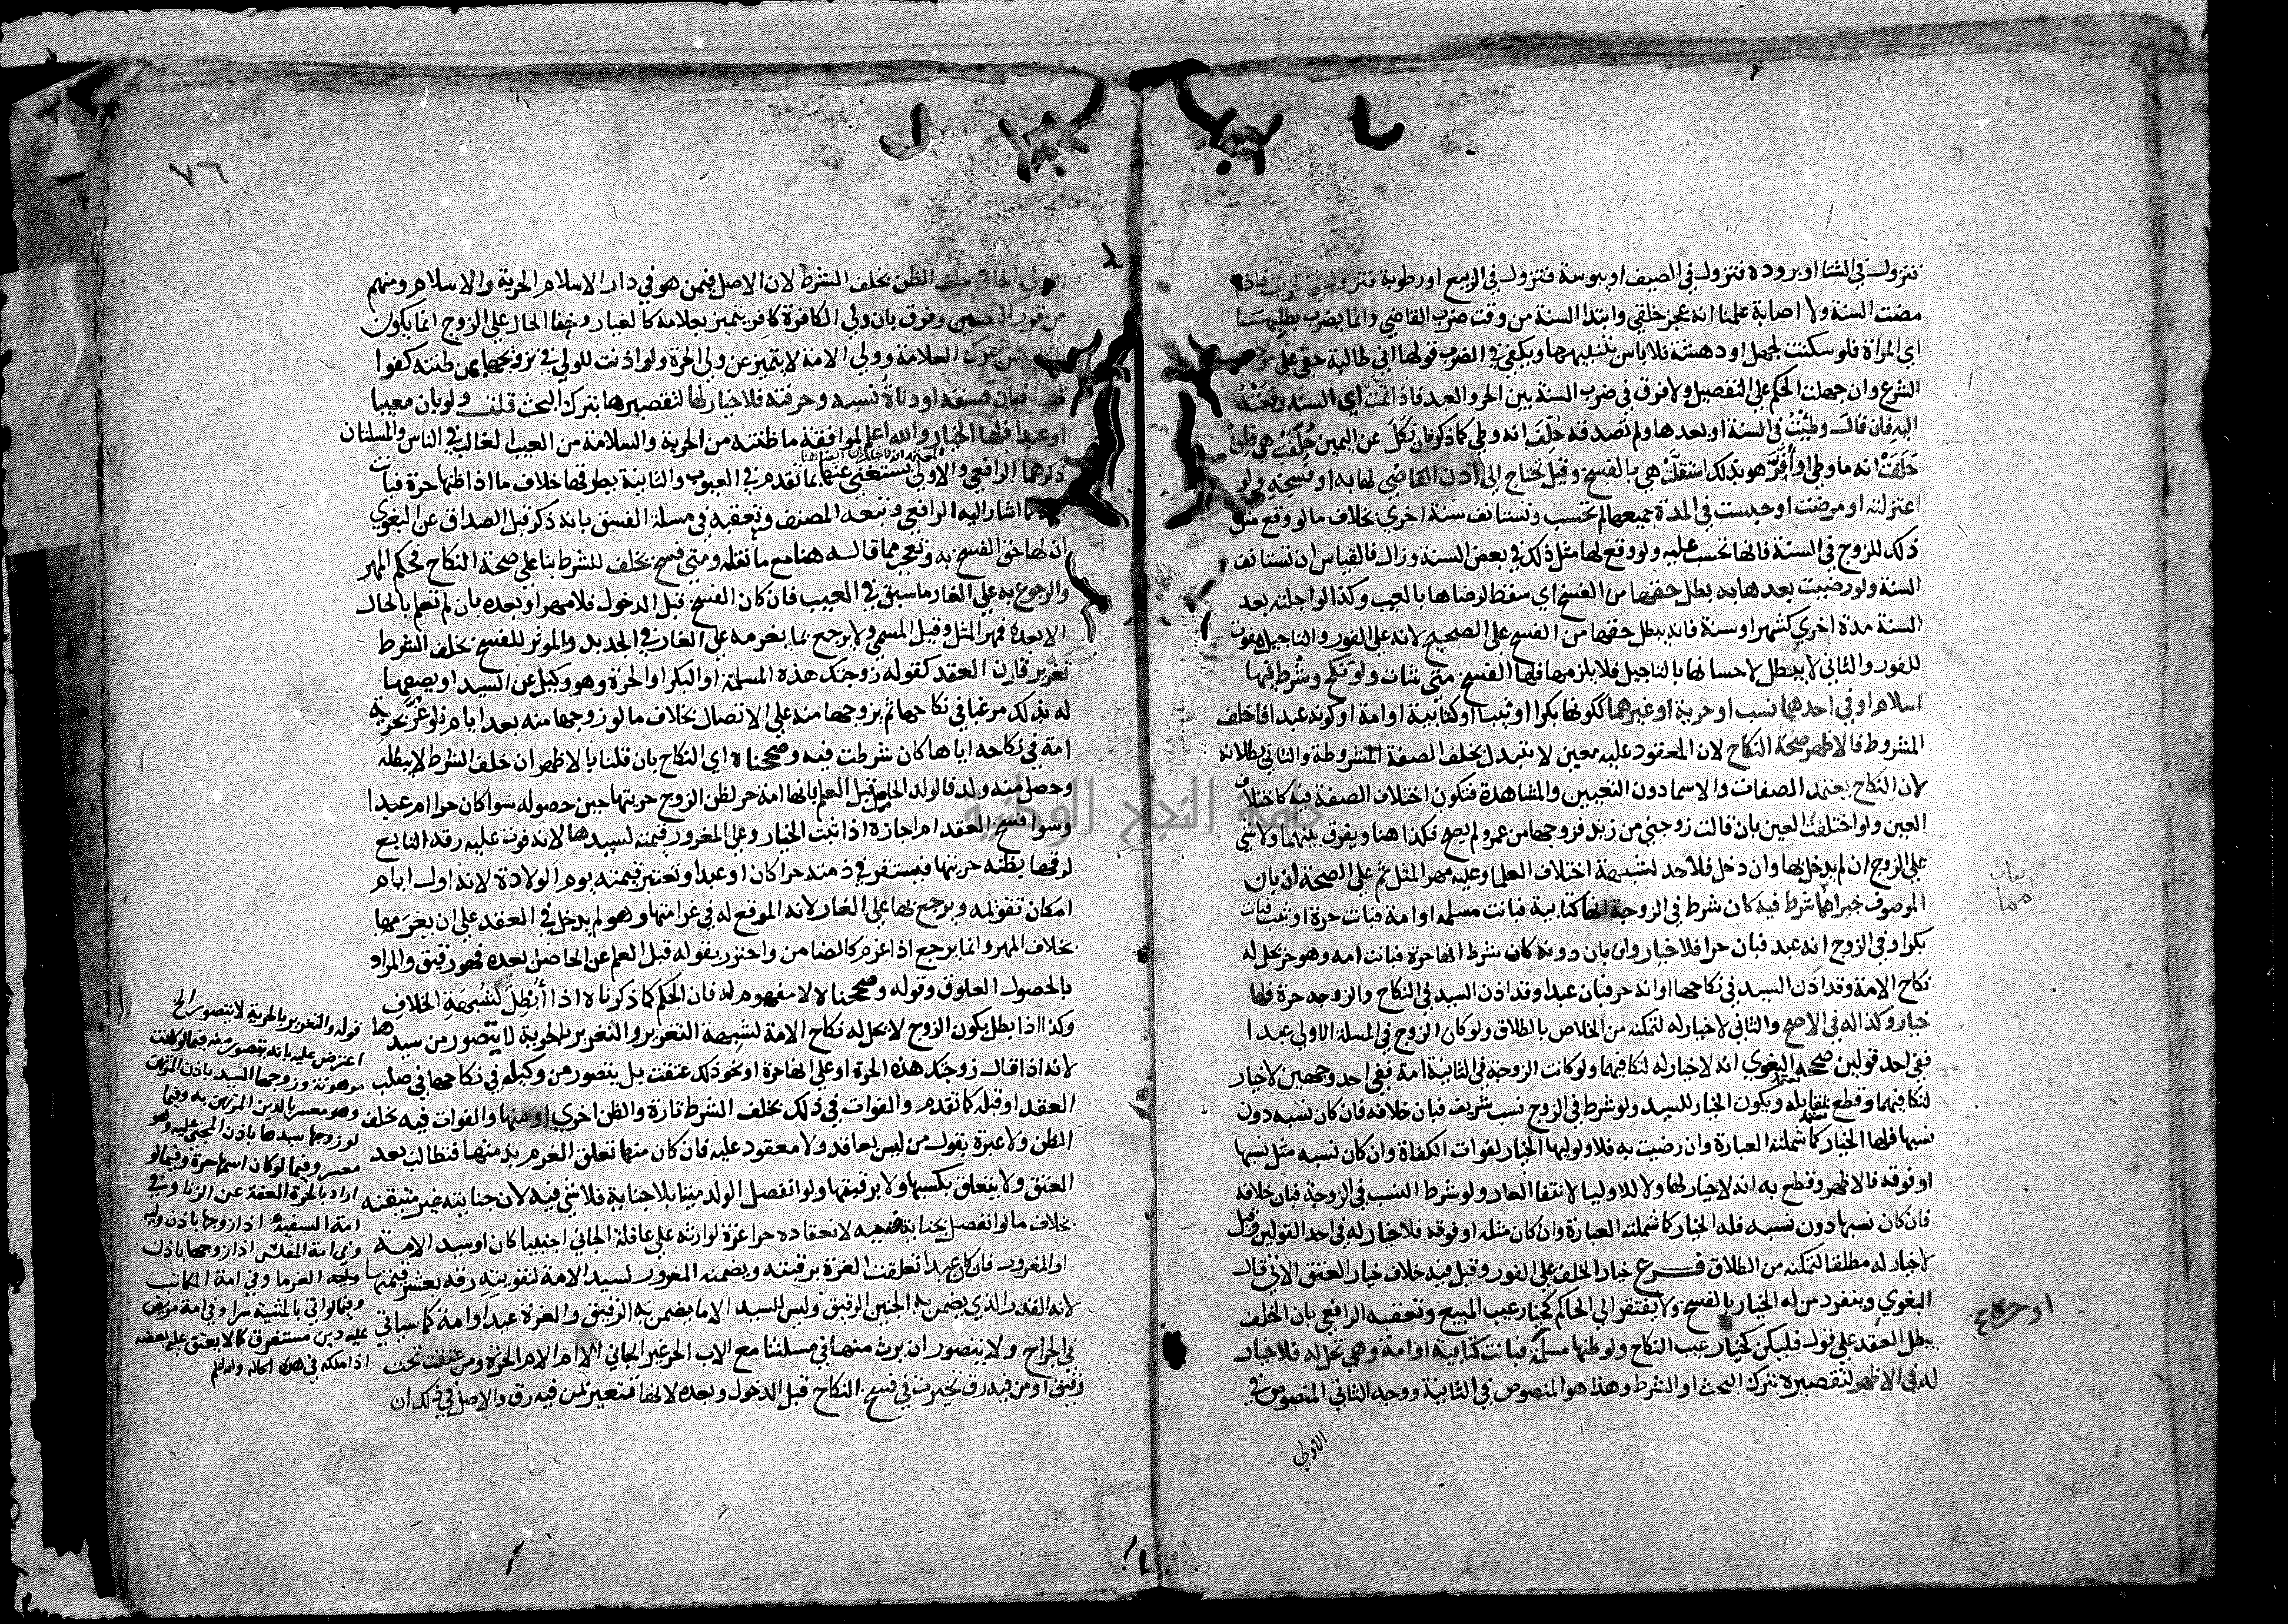 فتزول في الشتا او برودة فتزول في الصيف او يبوسة فتزول في الربيع او رطوبة فتزول في الخريف فاذا
مضت السنة ولا اصابة علمنا انه عجز خلقي وابتدا السنة من وقت ضرب القاضي وانما يضرب بطلبها
اي المراة فلو سكتت لجهل او دهشة فلا باس بتنبيهها ويكفي في الضرب قولها اني طالبة حقي على موجب
الشرع وان جهلت الحكم على التفصيل ولا فرق في ضرب السنة بين الحر والعبد فاذا تمت اي السنة رفعته
اليه فان قال وطيت في السنة او بعدها ولم تصدقه حلف انه وطي كما ذكر فان نكل عن اليمين حلفت هي فان
حلفت انه ما وطي او اقر هو بذلك استقلت هي بالفسخ وقيل تحتاج الى اذن القاضي لها به او فسخه ولو
اعتزلته او مرضت او حبست في المدة جميعها لم تحسب وتستانف سنة اخري بخلاف ما لو وقع مثل
ذلك للزوج في السنة فانها تحسب عليه ولو وقع لها مثل ذلك في بعض السنة وزال فالقياس ان تستانف
السنة ولو رضيت بعدها به بطل حقها من الفسخ اي سقط لرضاها بالعيب وكذا لو اجلته بعد
السنة مدة اخري كشهر او سنة فانه يبطل حقها من الفسخ على الصحيح لانه على الفور والتاجيل مفوت
للفور والثاني لا يبطل لاحسانها بالتاجيل فلا يلزمها فلها الفسخ متى شات ولو نكح وشرط فيها
اسلام او في احدهما نسب او حرية او غيرهما ككونها بكرا او ثيبا او كتابية او امة او كونه عبدا فاخلف
المشروط فالاظهر صحة النكاح لان المعقود عليه معين لا يتبدل بخلف الصفة المشروطة والثاني بطلانه
لان النكاح يعتمد الصفات والاسما دون التعيين والمشاهدة فتكون اختلاف الصفة فيه كاختلاف
العين ولو اختلفت العين بان قالت زوجني من زيد فزوجها من عمرو لم يصح فكذا هنا ويفرق بينهما ولا شي
على الزوج ان لم يدخل بها وان دخل فلا حد لشبهة اختلاف العلما وعليه مهر المثل ثم على الصحة ان بان
الموصوف خيرا مما شرط فيه كان شرط في الزوجة انها كتابية فبانت مسلمة او امة فبانت حرة او ثيب فبانت
بكرا وفي الزوج انه عبد فبان حرا فلا خيار وان بان دونه كان شرط انها حرة فبانت امه وهو حر يحل له
نكاح الامة وقد اذن السيد في نكاحها او انه حر فبان عبدا وقد اذن السيد في النكاح والزوجه حرة فلها
خيار وكذا له في الاصح والثاني لا خيار له لتمكنه من الخلاص بالطلاق ولو كان الزوج في المسلة الاولي عبدا
ففي احد قولين صححه البغوي انه لا خيار له لتكافيهما ولو كانت الزوجة في الثانية امة ففي احد وجهين لا خيار
لتكافيهما وقطع بمقابله ويكون الخيار للسيد ولو شرط في الزوج نسب شريف فبان خلافه فان كان نسبه دون
نسبها فلها الخيار كما شملته العبارة وان رضيت به فلاوليها الخيار لفوات الكفاة وان كان نسبه مثل نسبها
او فوقه فالاظهر وقطع به انه لا خيار لها ولا للاوليا لانتفا العار ولو شرط النسب في الزوجة فبان خلافه
فان كان نسبها دون نسبه فله الخيار كما شملته العبارة وان كان مثله او فوقه فلا خيار له في احد القولين وقيل
لا خيار له مطلقا لتمكنه من الطلاق فرع خيار الخلف على الفور وقيل فيه خلاف خيار العتق الاتي قال
البغوي وينفرد من له الخيار بالفسخ ولا يفتقر الي الحاكم كخيار عيب المبيع وتعقبه الرافعي بان الخلف
يبطل العقد على قول فليكن كخيار عيب النكاح ولو ظنها مسلمة فبانت كتابية او امة وهي تحل له فلا خيار
له في الاظهر لتقصيره بترك البحث او الشرط وهذا هو المنصوص في الثانية ووجه الثاني المنصوص في
الاولي
او حرة صح
٧٦
الاولي الحاق خلف الظن بخلف الشرط لان الاصل فيمن هو في دار الاسلام الحرية والاسلام ومنهم
من قرر النصين وفرق بان ولي الكافرة كافر يتميز بعلامة كالغيار وخفا الحال على الزوج انما يكون
العلامة وولي الامة لا يتميز عن ولي الحرة ولو اذنت للولي في تزويجها بمن ظنته كفوا
فبان فسقه او دناة نسبه وحرفته فلا خيار لها لتقصيرها بترك البحث قلت ولو بان معيبا
او عبدا فلها الخيار والله اعلم لموافقة ما ظنته من الحرية والسلامة من العيب الغالب في الناس والمسلتان
ذكرهما الرافعي والاولي يستغنى عنها بما تقدم في العيوب والثانية بطرقها خلاف ما اذا ظنها حرة فبانت
اشار اليه الرافعي وتبعه المصنف وتعقبه في مسلة الفسق بانه ذكر قبل الصداق عن البغوي
ان لها حق الفسخ به وتعجب مما قاله هنا مع ما نقله ومتى فسخ بخلف للشرط بنا على صحة النكاح فحكم المهر
والرجوع به على الغار ما سبق في العيب فان كان الفسخ قبل الدخول فلا مهر او بعده بان لم تعلم بالحال
الا بعده فمهر المثل وقيل المسمي ولا يرجع بما يغرمه على الغار في الجديد والموثر للفسخ بخلف الشرط
تغرير قارن العقد كقوله زوجتك هذه المسلمة او البكر او الحرة وهو وكيل عن السيد او يصفها
له بذلك مرغبا في نكاحها ثم يزوجها منه على الاتصال بخلاف ما لو زوجها منه بعد ايام ولو غر بحرية
امة في نكاحه اياها كان شرطت فيه وصححناه اي النكاح بان قلنا بالاظهر ان خلف الشرط لا يبطله
وحصل منه ولد فالولد الحاصل قبل العلم بانها امة حر لظن الزوج حريتها حين حصوله سوا كان حرا ام عبدا
وسوا فسخ العقد ام اجازه اذا ثبت الخيار وعلى المغرور قيمته لسيدها لانه فوت عليه رقه التابع
لرقها بظنه حريتها فيستقر في ذمته حرا كان او عبدا وتعتبر قيمته يوم الولادة لانه اول ايام
امكان تقويمه ويرجع بها على الغار لانه الموقع له في غرامتها وهو لم يدخل في العقد على ان يغرمها
بخلاف المهر وانما يرجع اذا غرم كالضامن واحترز بقوله قبل العلم عن الحاصل بعده فهو رقيق والمراد
بالحصول العلوق وقوله وصححناه لا مفهوم له فان الحكم كما ذكرناه اذا أبطل لشبهة الخلاف
وكذا اذا بطل بكون الزوج لا تحل له نكاح الامة لشبهة التغرير والتغرير بالحرية لا يتصور من سيدها
لانه اذا قال زوجتك هذه الحرة او على انها حرة او نحو ذلك عتقت بل يتصور من وكيله في نكاحها في صلب
العقد او قبله كما تقدم والفوات في ذلك بخلف الشرط تارة والظن اخري او منها والفوات فيه بخلف
الظن ولا عبرة بقول من ليس بعاقد ولا معقود عليه فان كان منها تعلق الغرم بذمتها فتطالب بعد
العتق ولا يتعلق بكسبها ولا برقبتها ولو انفصل الولد ميتا بلا جناية فلا شي فيه لان حياته غير متيقنة
بخلاف ما لو انفصل بجناية ففيه لانعقاده حرا غرة لوارثه على عاقلة الجاني اجنبيا كان او سيد الامة
او المغرور فان كان عبدا تعلقت الغرة برقبته ويضمنه المغرور لسيد الامة لتفويته رقه بعشر قيمتها
لانه القدر الذي يضمن به الجنين الرقيق وليس للسيد الا ما يضمن به الرقيق والغرة عبد او امة كما سياتي
في الجراح ولا يتصور ان يرث منها في مسلتنا مع الاب الحر غير الجاني الا ام الام الحرة ومن عتقت تحت
رقيق او من فيه رق تخيرت في فسخ النكاح قبل الدخول وبعده لانها تتعير بمن فيه رق والاصل في ذلك ان
قوله والتغرير بالحرية لا يتصور الخ
اعترض عليه بانه يتصور منه فيما لو كانت
مرهونة وزوجها السيد باذن المرتهن
وهو معسر بالدين المرتهن به وفيما
لو زوجها سيدها باذن المجني عليه وهو
معسر وفيما لو كان اسمها حرة وفيما لو
اراد بالحرة العفة عن الزنا وفي
امة السفيه اذا زوجها باذن وليه
وفي امة المفلس اذا زوجها باذن
الغرما وفي امة المكاتب
وفيما لو اتى بالمشية سرا وفي امة مورث
عليه دين مستغرق كما لا يعتق عليه بعضه
اذا ملكه في هذه الحالة والله اعلم
جامعة النجاح الوطنية